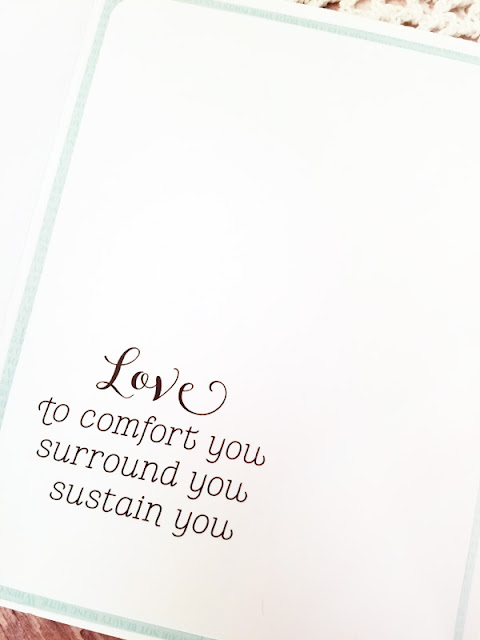 Love
to comfort you
surround you
sustain you